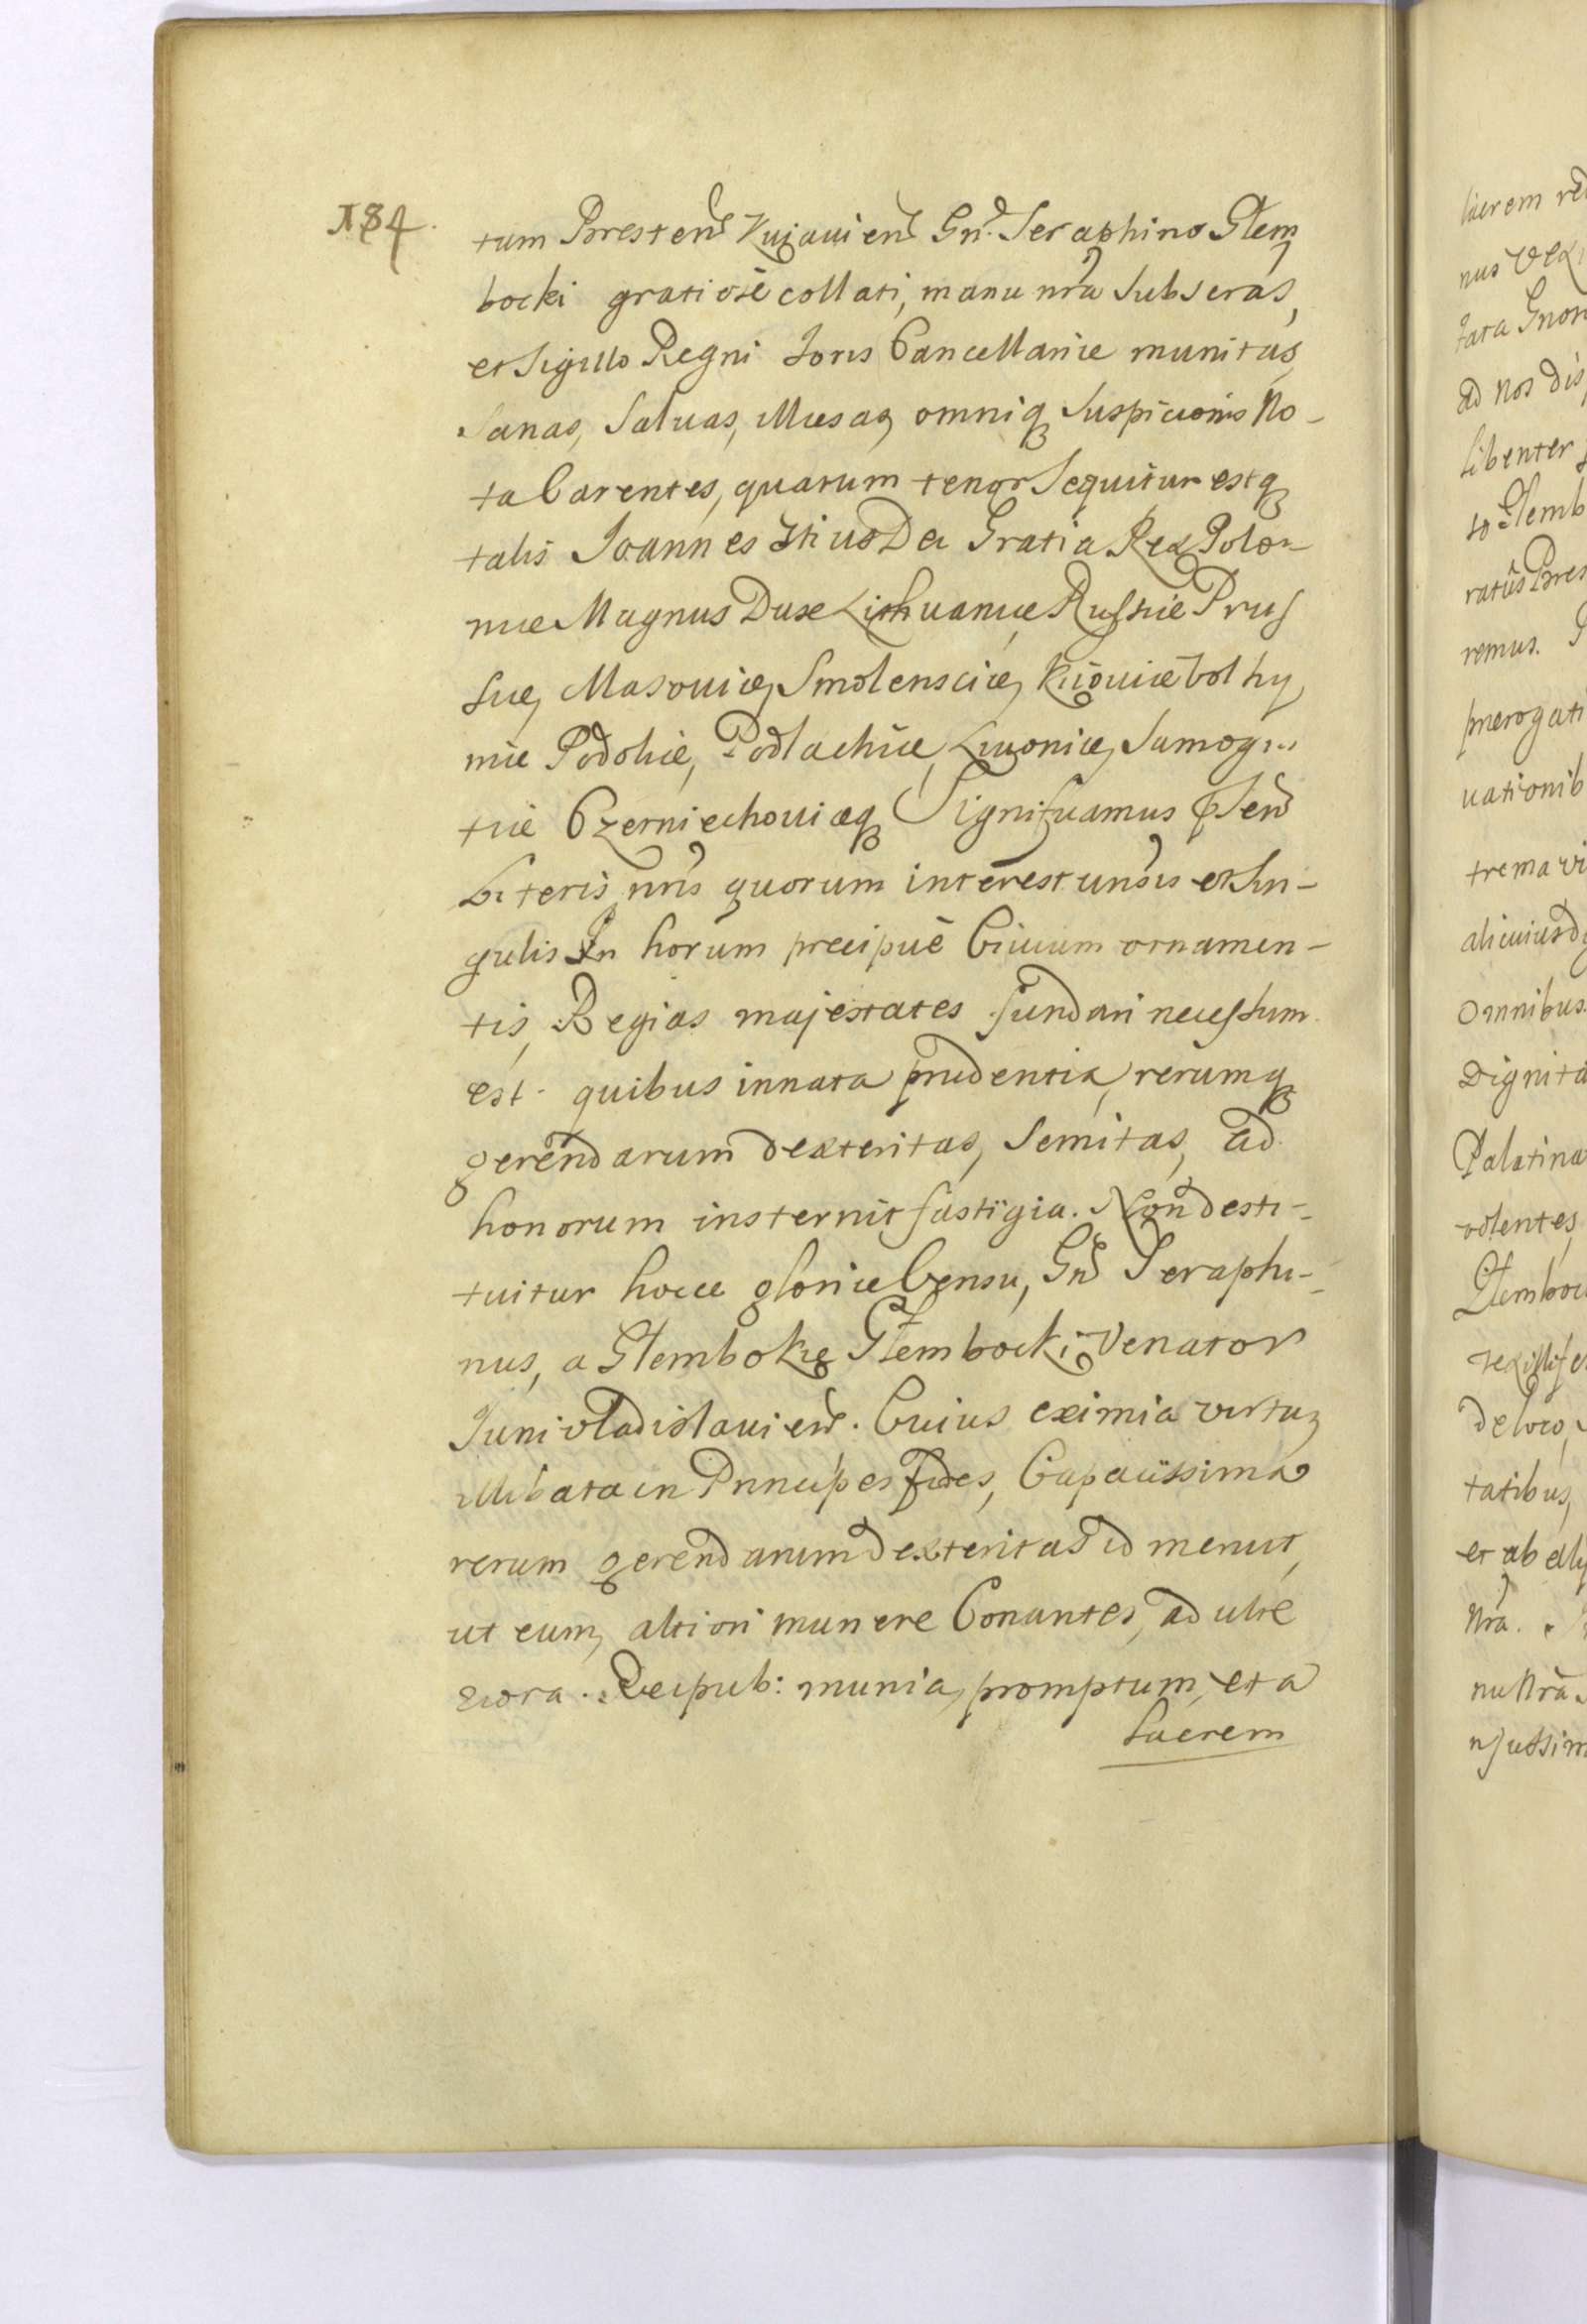 184.
tum Brestens Kujaviens Gn. Seraphino Glem
bocki gratiose collati, manu nra Subscras,
et Sigillo Regni Joris Cancellariæ munitas,
Sanas, Salvas, illæsas, omniq Suspicionis No-
ta Carentes, quarum tenor Sequitur estq
talis Joannes 3tius Dei Gratia Rex Polo-
niæ Magnus Dux Lithuaniæ Russiæ Prus
siæ, Masoviæ, Smolensciæ, Kiioviæ Volhy
niæ Podoliæ, Podlachiæ, Livoniæ, Samogi-
tiæ Czerniechoviæq Significamus pSens
Literis nris quorum interest unsis et Sin-
gulis In horum præcipuè Civium ornamen-
tis, Regias majestates fundari necessum
est. quibus innata prudentia, rerumq
gerendarum dexteritas, Semitas, ad
honorum insternit fastigia. Non desti-
tuitur hocce gloriæ Censu, Gns Seraphi-
nus, a Glembokie Glembocki Venator
Junivladislaviens. Cuius eximia virtus,
illibata in Principes fides, Capacissima
rerum gerendarum dexteritas id meruit,
ut eum, altiori munere Conantes, ad ulte
riora. Reipub: munia, promptum, et a
lacrem
lacrem
nus
ad nos dis
libenter
remus.
prerogati
vationib
trema vi
alicuius
Omnibus
Dignita
Palatina
volentes
Glemboc
de loco,
tatibus,
et ab
nra.
nu nra